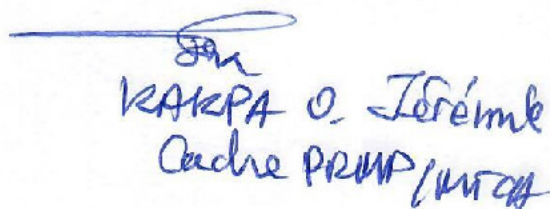 KAKPA O. Jérémie
Cadre PRMP/